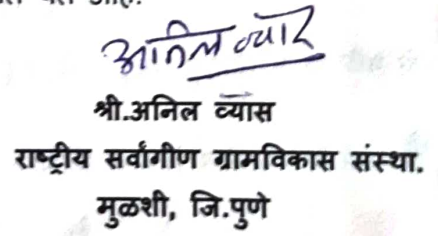 अनिल व्यास
श्री.अनिल व्यास
राष्ट्रीय सर्वांगीण ग्रामविकास संस्था.
मुळशी, जि.पुणे